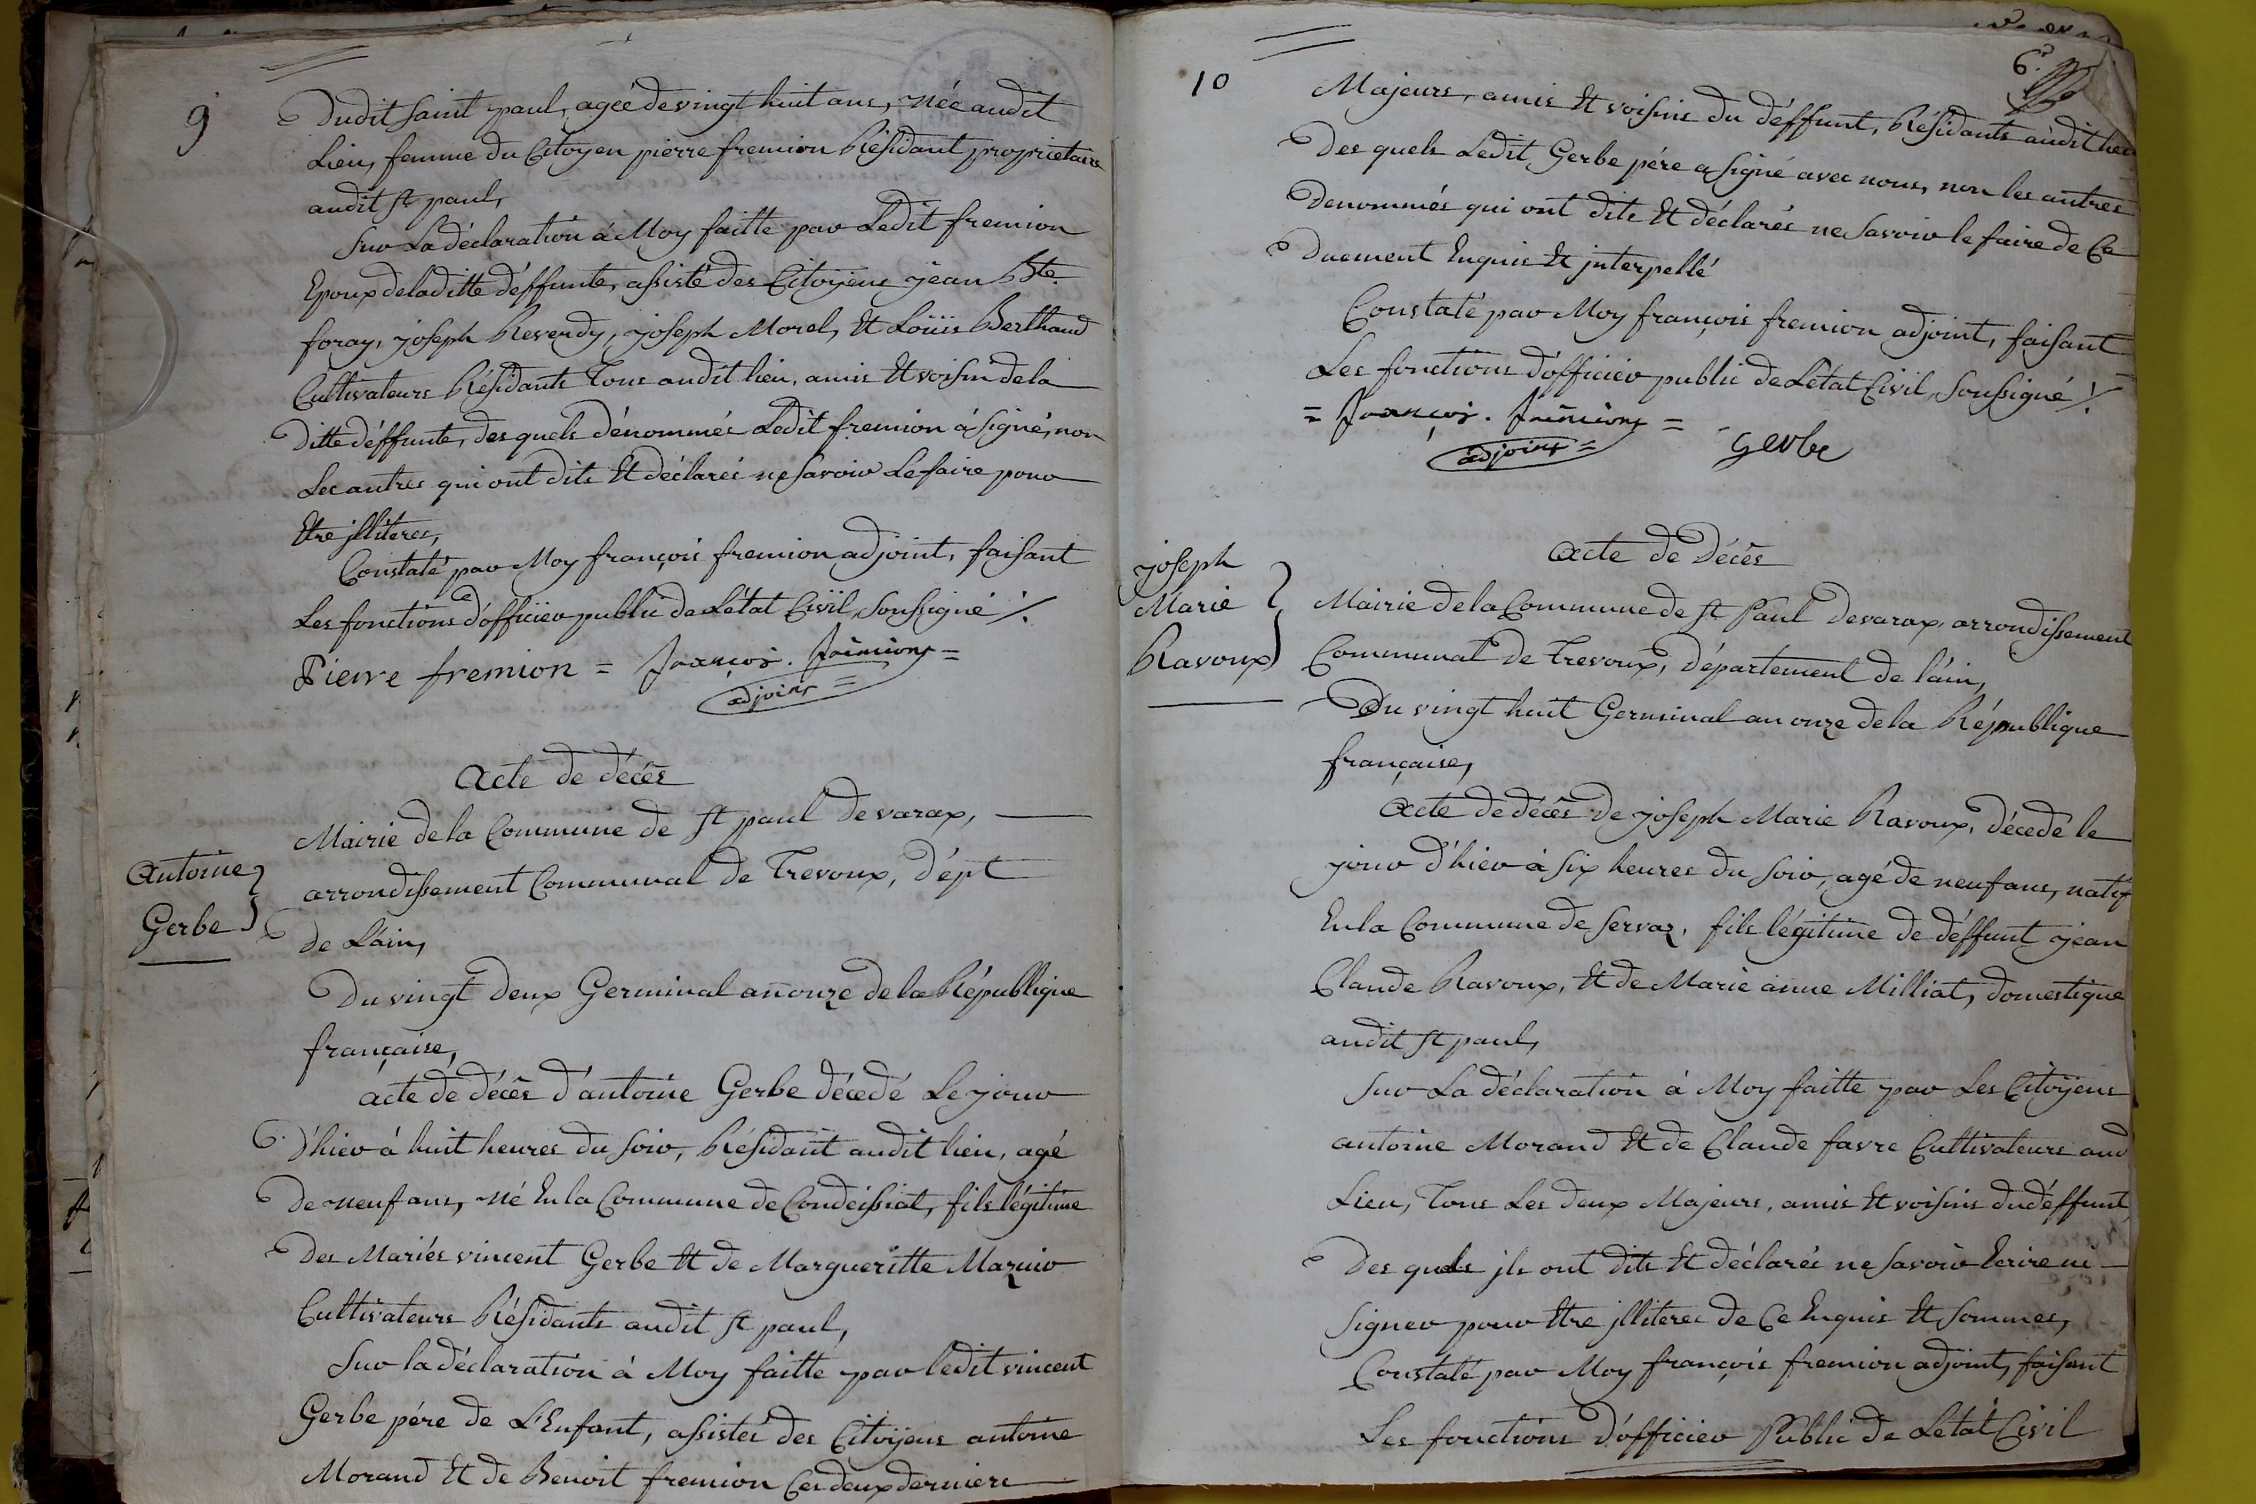 9
Dudit saint paul, agée de vingt huit ans, née audit
Lieu, femme du Citoyen pierre fremion Résidant propriétaire
audit st paul,
Sur La déclaration à Moy faitte par Ledit fremion
Epoux de laditte déffunte, assisté des Citoÿens jean Bte.
foray, joseph Reverdy, joseph Morel, Et Loüis Berthaud
Cultivateurs Résidants Tous audit lieu, amis Et voisin de la
Ditte déffunte, des quels dénommés Ledit fremion à signé, non
Les autres qui ont dits Et déclarés ne savoir Le faire pour
Etre jlliteres,
Constaté par Moy françois fremion adjoint, faisant
Les fonctions d'officier public de L'état Civil, soussigné ./.
Pierre fremion = françois . frémiont =
adjoint =
Acte de décès
Mairie de la Commune de st paul de varax,
arrondissement Communal de Trevoux, dépt
de L'ain,
Antoine
Gerbe
Du vingt deux Germinal an onze de la République
française,
acte de décès d'antoine Gerbe décedé Le jour
D'hier à huit heures du soir, Résidant audit lieu, agé
De neuf ans, né En la Commune de Condeissiat, fils légitime
Des Mariés vincent Gerbe Et de Margueritte Mazuir
Cultivateurs Résidants audit st paul,
Sur la déclaration à Moy faitte par ledit vincent
Gerbe pére de L'Enfant, assistés des Citoÿens antoine
Morand Et de Benoit fremion Ces deux derniers
6.
10
Majeurs, amis Et voisins du déffunt, Résidants audit lieu
Des quels Ledit Gerbe pére a signé avec nous, non les autres
Denommés qui ont dits Et déclarés ne savoir le faire de Ce
Duement Enquis Et jnterpellé
Constaté par Moy françois fremion adjoint, faisant
Les fonctions d'officier public de L'état Civil, soussigné ./.
= françois . frémiont = Gerbe
adjoint =
Acte de Décès
joseph
Marie
Ravoux
Mairie de la Commune de st Paul de varax, arrondissement
Communal de Trevoux, département de l'ain,
Du vingt huit Germinal an onze de la République
française,
Acte de décès de joseph Marie Ravoux, décedé le
jour d'hier à six heures du soir, agé de neuf ans, natif
En la Commune de servaz, fils légitime de déffunt jean
Claude Ravoux, Et de Marie anne Milliat, domestique
audit st paul,
Sur La déclaration à Moy faitte par Les Citoÿens
antoine Morand Et de Claude favre Cultivateurs aud
Lieu, Tous Les deux Majeurs, amis Et voisins du déffunt,
Des quels jls ont dits Et déclarés ne savoir Ecrire ni
signer pour Etre jlliteres de Ce Enquis Et sommes,
Constaté par Moy françois fremion adjoint, faisant
Les fonctions D'officier Public de L'état Civil